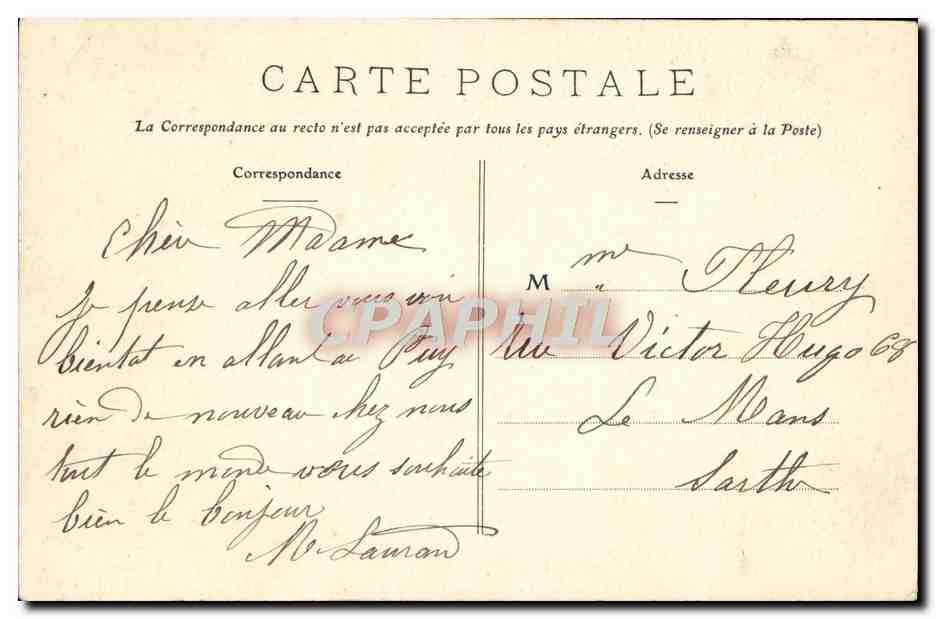 CARTE POSTALE
La Correspondance au recto n'est pas acceptée par tous les pays étrangers. (Se renseigner à la Poste)
Correspondance
Chère Madame
je pense aller vous voir
bientot en allant au Puy
rien de nouveau chez nous
tout le monde vous souhaite
bien le bonjour
M Lauran
Adresse
M me Fleury
rue Victor Hugo 68
Le Mans
Sarthe
CPAPHIL